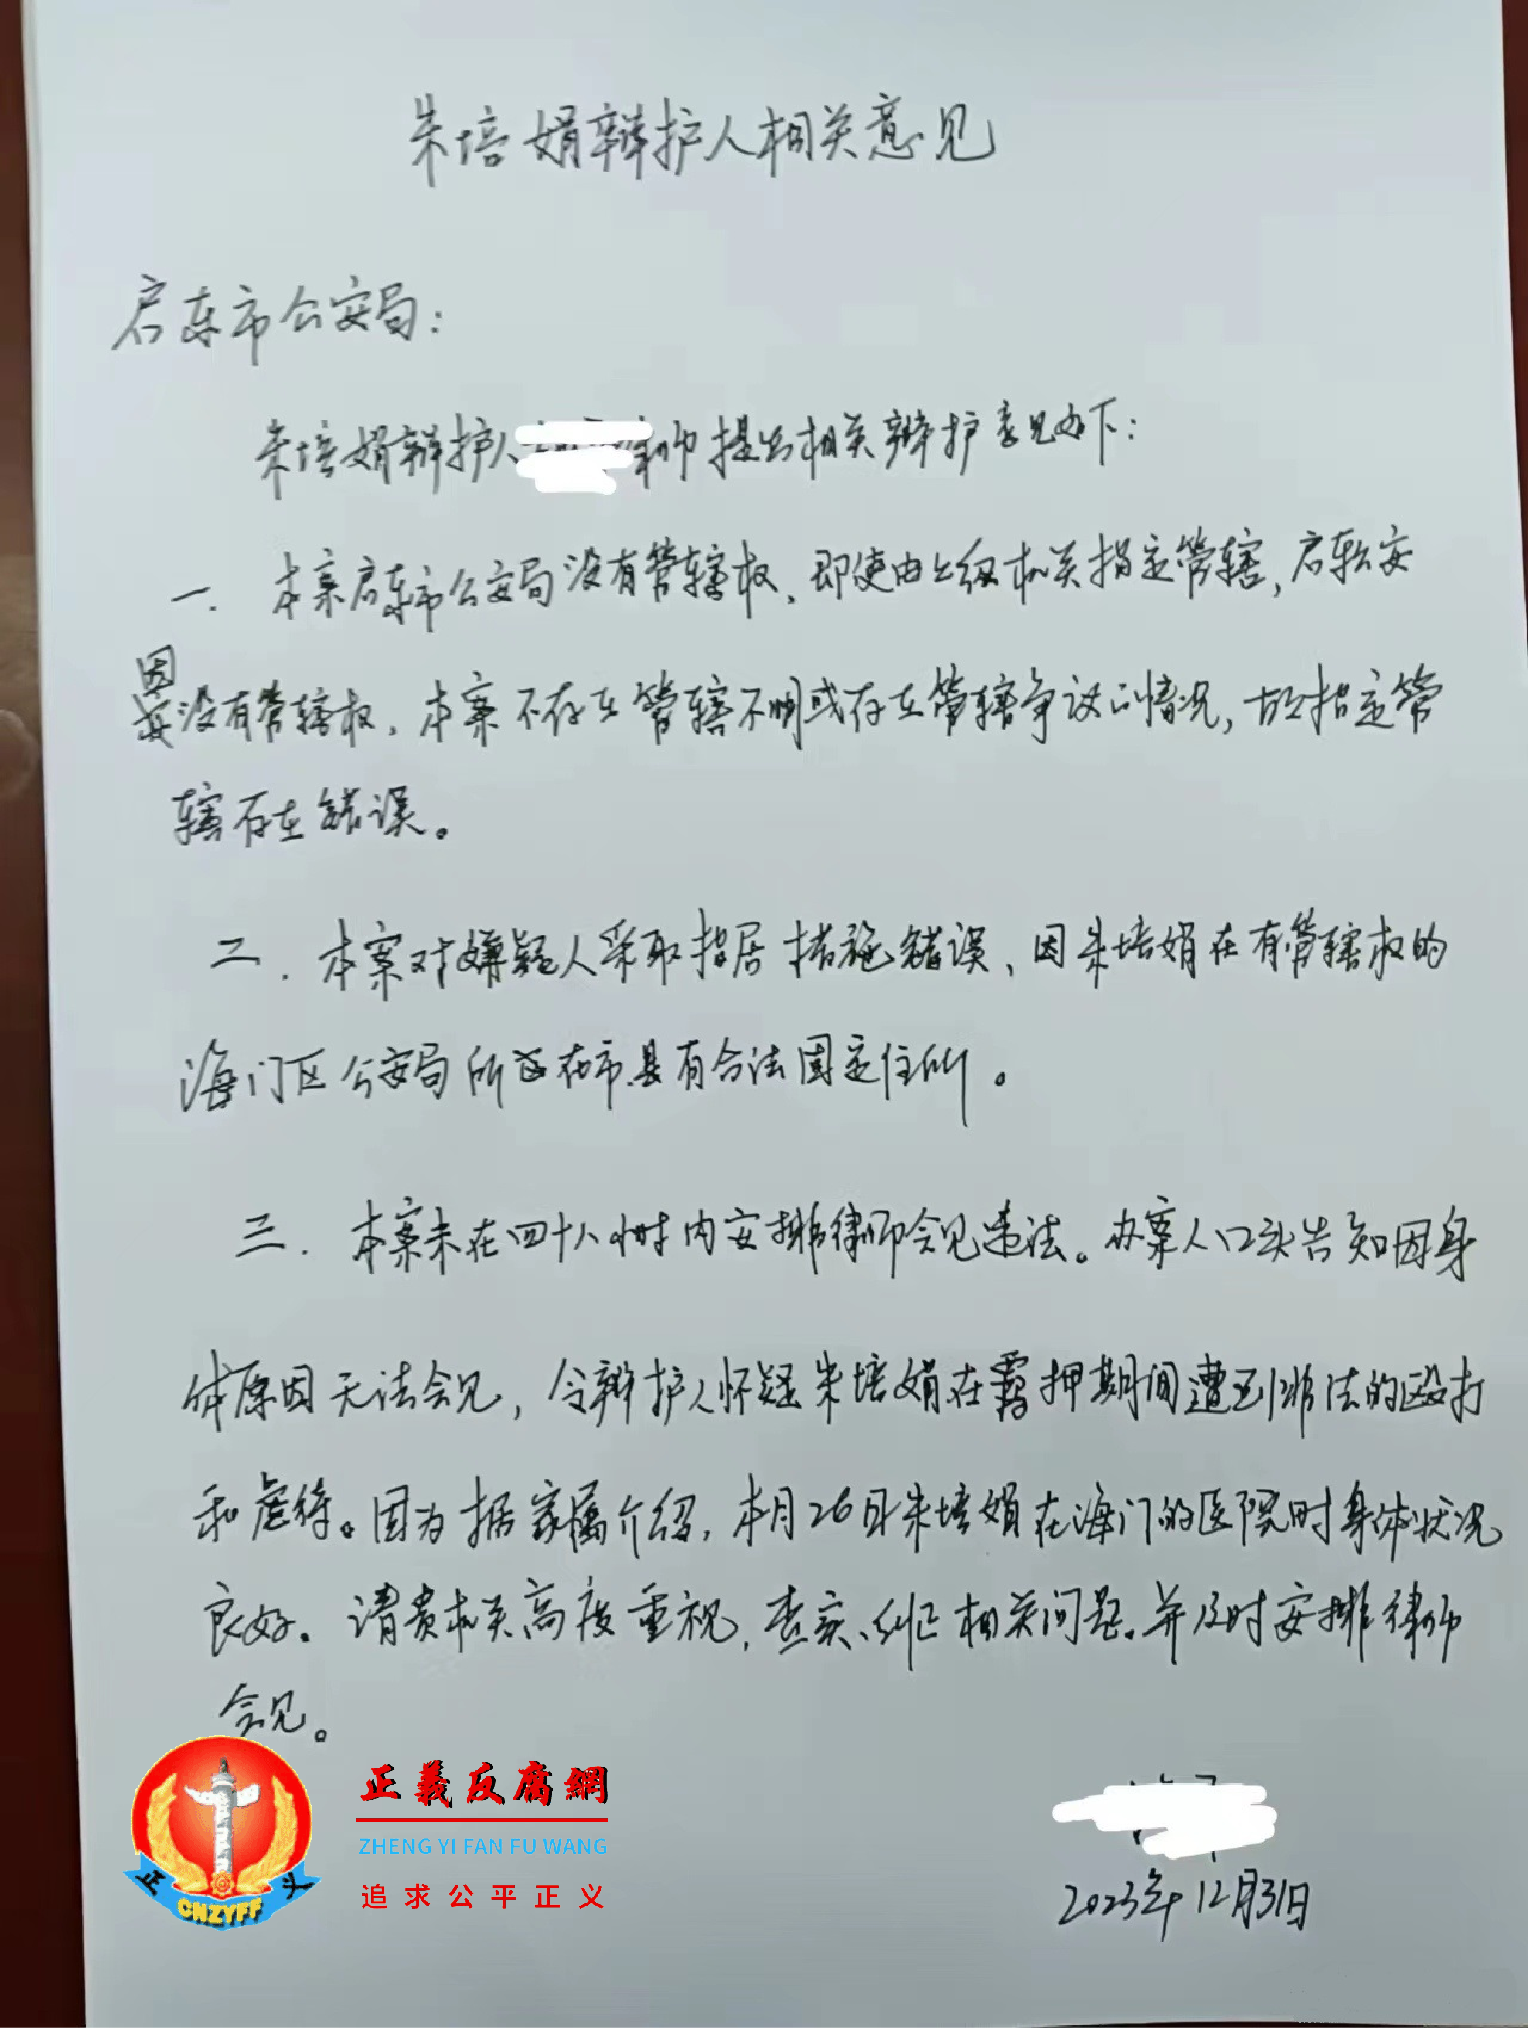 朱培娟辩护人相关意见
启东市公安局：
朱培娟辩护人 律师提出相关辩护意见如下：
一. 本案启东市公安局没有管辖权，即使由上级机关指定管辖，启东公安
因没有管辖权，本案不存在管辖不明或存在管辖争议的情况，故指定管
辖存在错误。
二. 本案对嫌疑人采取指居措施错误，因朱培娟在有管辖权的
海门区公安局所在市.县有合法固定住所。
三. 本案未在四十八小时内安排律师会见违法。办案人口头告知因身
体原因无法会见，令辩护人怀疑朱培娟在羁押期间遭到非法的殴打
和虐待。因为据家属介绍，本月26日朱培娟在海门的医院时身体状况
良好。请贵机关高度重视，查实、纠正相关问题。并及时安排律师
会见。
正義反腐網
ZHENG YI FAN FU WANG
追求公平正义
正 CNZYFF 义
2023年12月31日